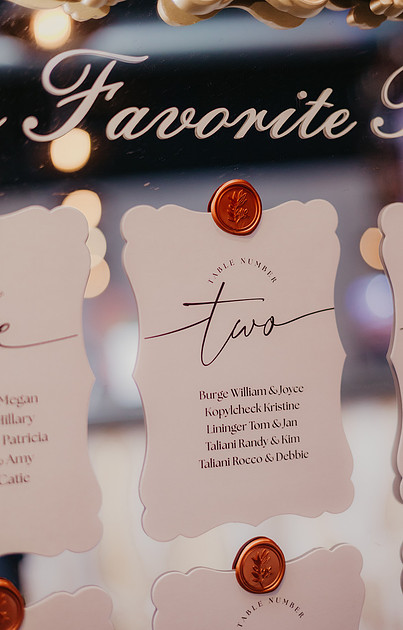 Favorite
TABLE NUMBER
two
Burge William & Joyce
Kopylcheck Kristine
Lininger Tom & Jan
Taliani Randy & Kim
Taliani Rocco & Debbie
Megan
Hillary
Patricia
& Amy
Catie
TABLE NUMBER